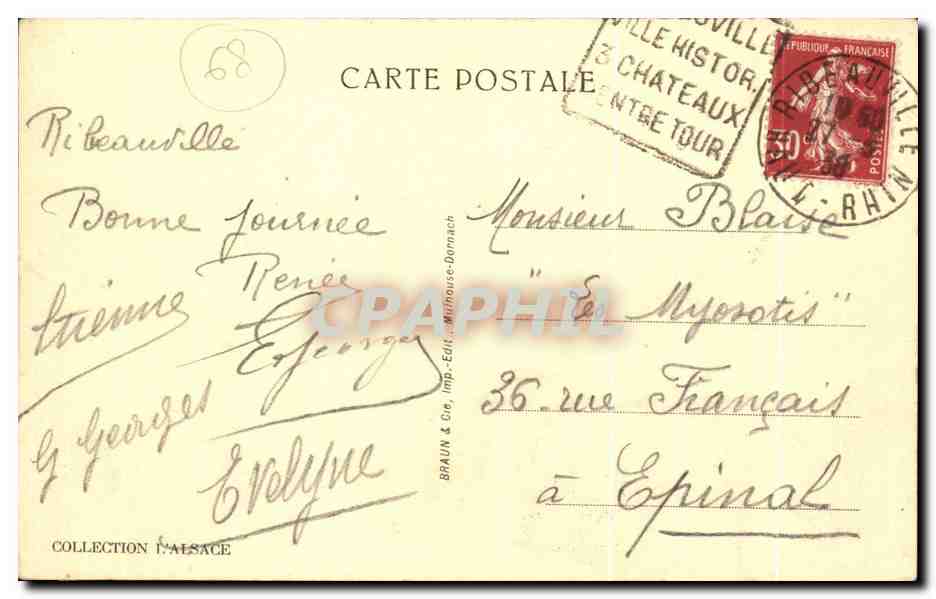 68
CARTE POSTALE
VILLE HISTOR.
3 CHATEAUX
CENTRE TOUR
REPUBLIQUE FRANÇAISE
30 c.
POSTES
RIBEAUVILLE
HT RHIN
Ribeauvillé
Bonne journée
Renée
Etienne
G Georges
Evelyne
Monsieur Blaise
"Les Myosotis"
36 rue Français
à Epinal
BRAUN & Cie, Imp.-Edit., Mulhouse-Dornach
COLLECTION L'ALSACE
CPAPHIL